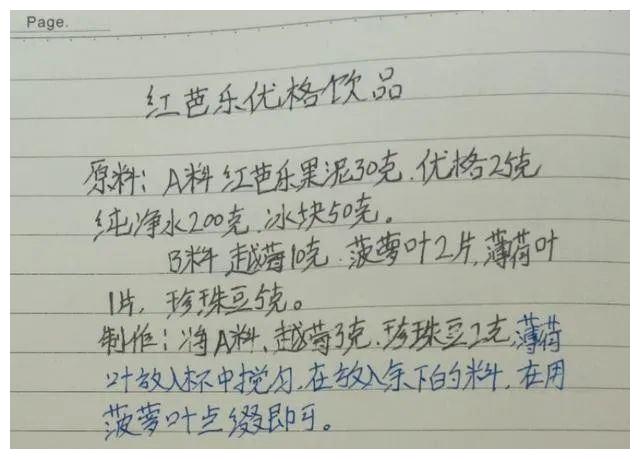 Page.
红芭乐优格饮品
原料：A料 红芭乐果泥30克、优格25克
纯净水200克、冰块50克。
B料 越莓10克、菠萝叶2片，薄荷叶
1片，珍珠豆5克。
制作：将A料、越莓3克、珍珠豆2克，薄荷
叶放入杯中搅匀，在放入余下的料，在用
菠萝叶点缀即可。